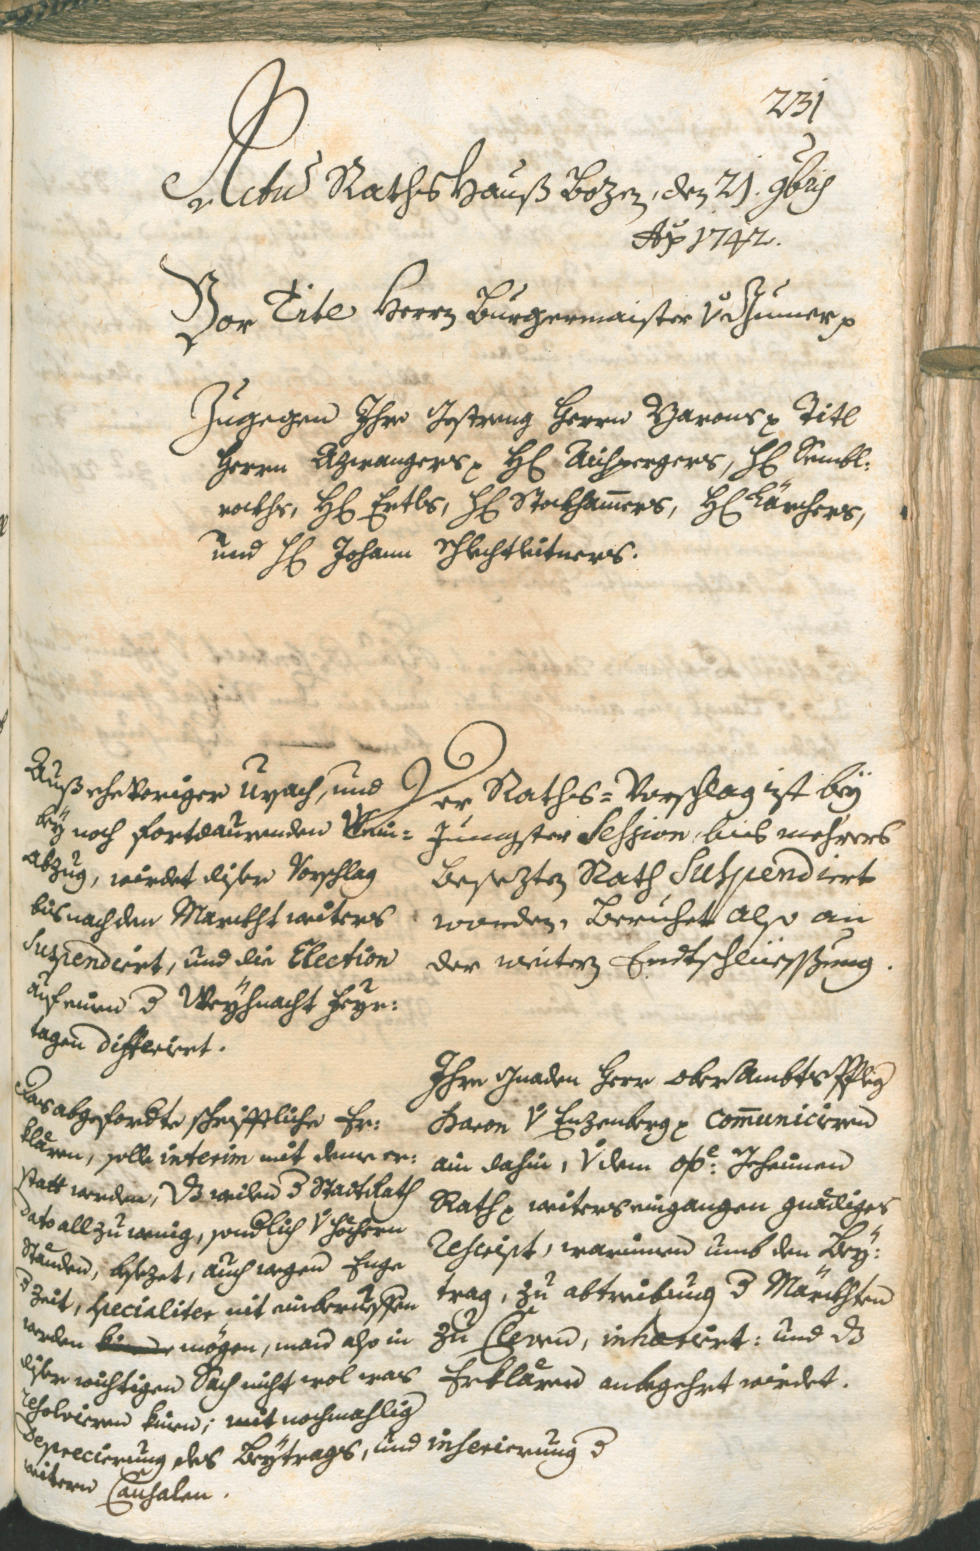 231
Actu Raths Hauß Bozen, den 21. 9bris
Ao 1742.
Vor Titl Herrn Burgermaister v Zhumer p
Zugegen Ihro Gestreng Herrn Barons p Titl
Herrn Azwangers p H: Aichpergers, H: Kembl-
roths, H: Ertls, H: Stockhamers, H: Kärchers,
und H: Johann Schlechtleitners.
Der Raths-Vorschlag ist beÿ
Jungster Session bis mehrers
besezten Rath Suspendiert
worden, beruhet also an
der weitern Endtschlüessung.
Auß ehevoriger Ursach, und
beÿ noch fortdaurenden Wein-
abzug, wirdet diser Vorschlag
bis nach den Marckht weiters
Suspendiert, und die Election
auf einen d Weÿhnacht Feyr-
tagen differiert.
Ihro Gnaden Herr Ober Ambts Pfleg
Baron v Enzenberg p communicieren
ain dahin, v dem Geheimen
Rath p weiters eingangen gnädiges
Rescript, warinnen umb den Beÿ-
trag, zu abtreibung d Märckhten
zu Cleven, inhaeriert: und dz
Erklären anbegehrt wirdet.
Das abgeforderte schrifftliche Er-
klären, solle interim mit deme er-
statt werden, dz weilen d Stadt Rath
dato all zu wenig, sondlich v höhern
Standen, besezet, auch wegen Enge
d Zeit, specialiter nit einberueffen
werden mögen, man also in
diser wichtigen Sach nicht wol was
resolvieren könen; mit nochmahlig
Deprecierung des Beÿtrags, und inserierung d
weitern Causalen.